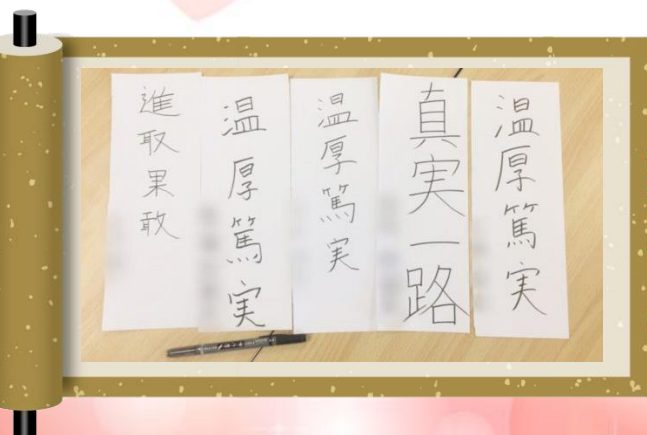 温厚篤実
真実一路
温厚篤実
温厚篤実
進取果敢